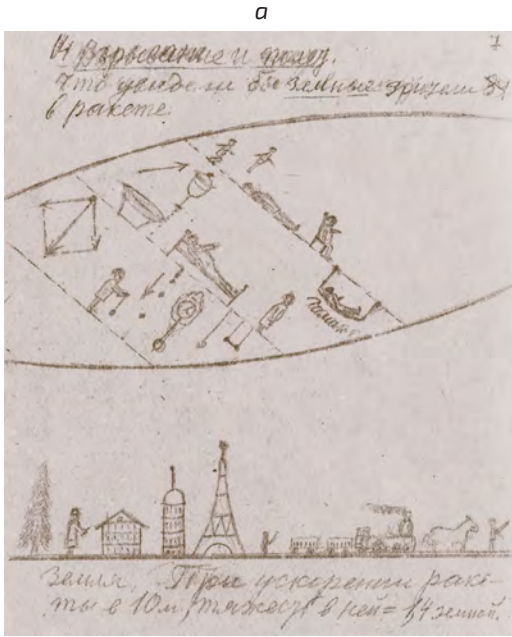 а
7
14 Взрывание и полет.
Что увидели бы земные зрители
в ракете.
гамак
Земля. При ускорении раке-
ты в 10 м, тяжесть в ней = 1,4 земной.